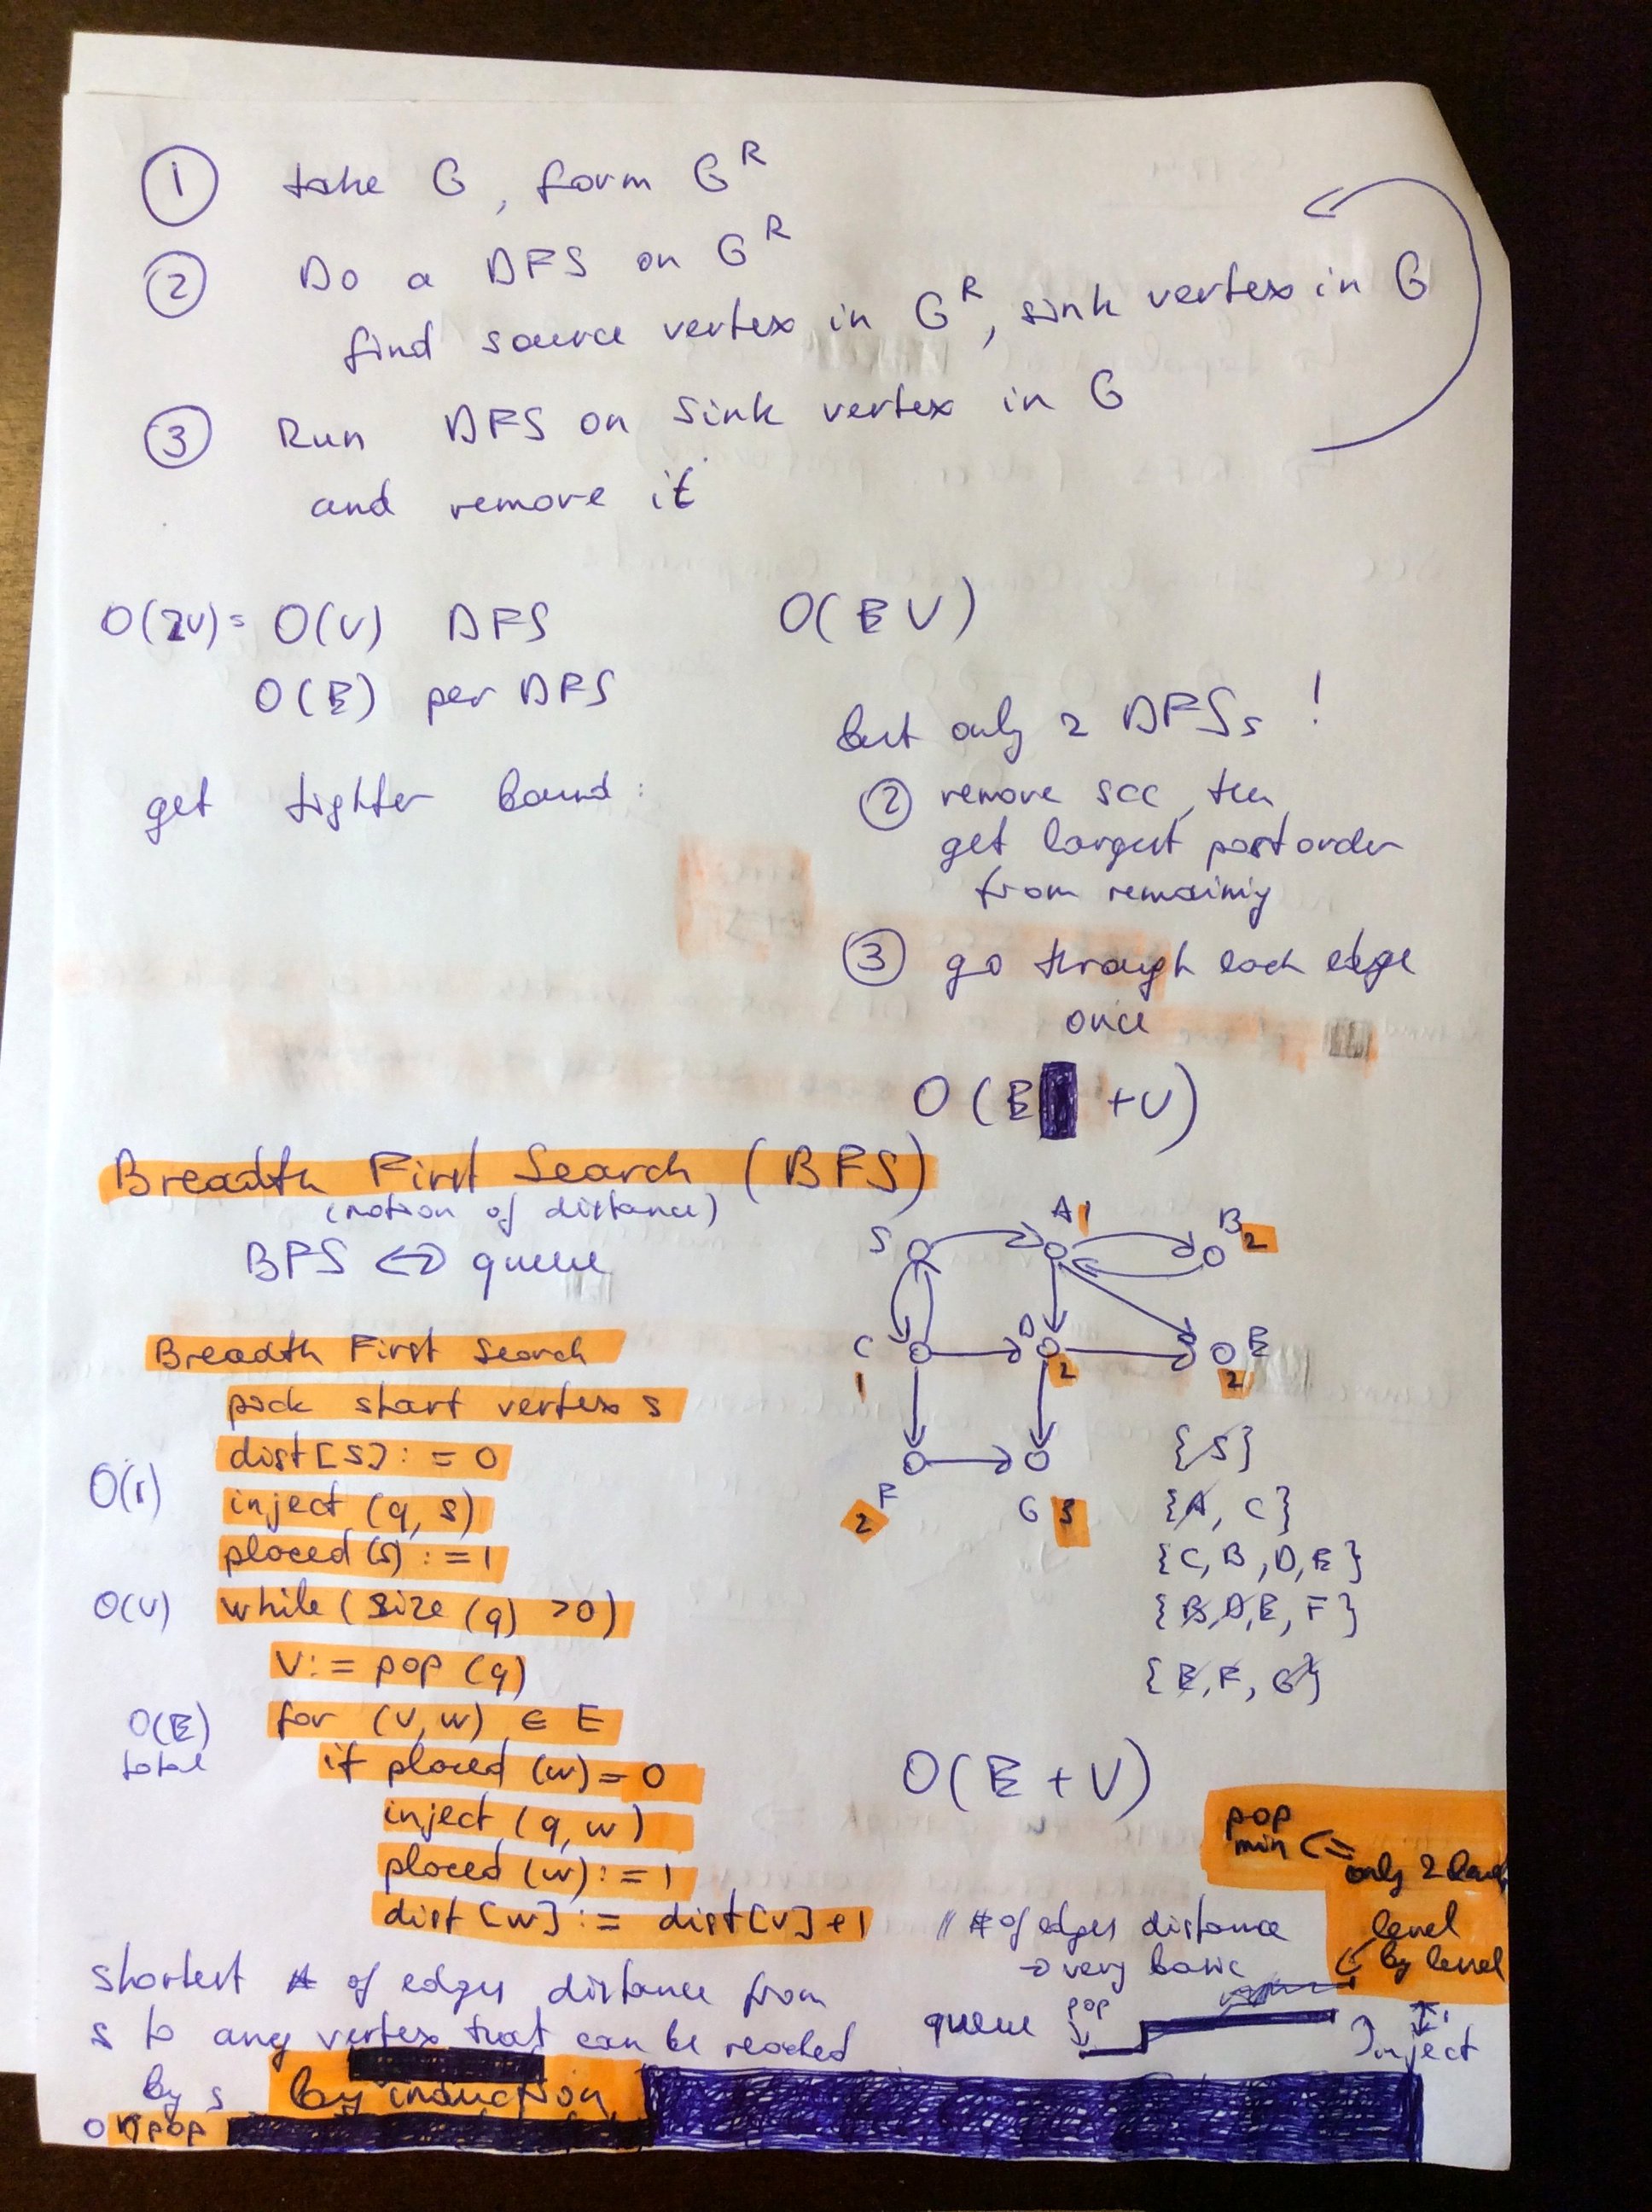 ① take G, form G^R
② Do a DFS on G^R
find source vertex in G^R, sink vertex in G
③ Run DFS on Sink vertex in G
and remove it
O(2V) = O(V) DFS
O(E) per DFS
get tighter bound:
O(E V)
but only 2 DFSs !
② remove scc, then
get largest postorder
from remaining
③ go through each edge
once
O(E +V)
Breadth First Search (BFS)
(notion of distance)
BFS <=> queue
S A 1 B 2
C 1 D 2 E 2
F 2 G 3
Breadth First Search
pick start vertex s
dist[s] := 0
O(1) inject (q, s)
placed(s) := 1
O(V) while (size (q) >0)
v := pop (q)
O(E) total for (v, w) ∈ E
if placed (w) = 0
inject (q, w)
placed (w) := 1
dist[w] := dist[v]+1 // # of edges distance
→ very basic
{S}
{A, C}
{C, B, D, E}
{B, D, E, F}
{E, F, G}
O(E + V)
pop
min <=
only 2 level
level
by level
shortest # of edges distance from
s to any vertex that can be reached
by s by induction
on pop
queue pop inject